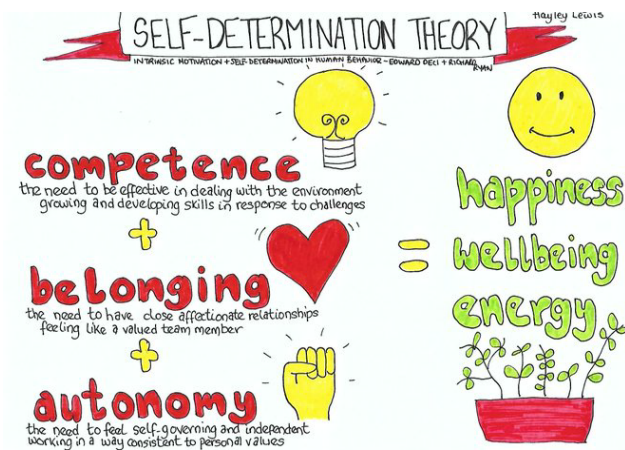 Hayley Lewis
SELF-DETERMINATION THEORY
INTRINSIC MOTIVATION + SELF-DETERMINATION IN HUMAN BEHAVIOR - EDWARD DECI + RICHARD
RYAN
competence
the need to be effective in dealing with the environment
growing and developing skills in response to challenges
+
belonging
the need to have close affectionate relationships
feeling like a valued team member
+
autonomy
the need to feel self-governing and independent
working in a way consistent to personal values
=
happiness
wellbeing
energy